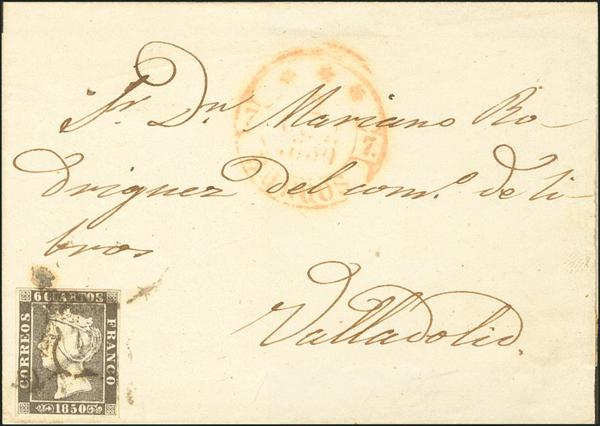 Sr. Dn. Mariano Ro-
driguez del com.o de li
bros
Valladolid.
6 CUARTOS
CORREOS
FRANCO
1850